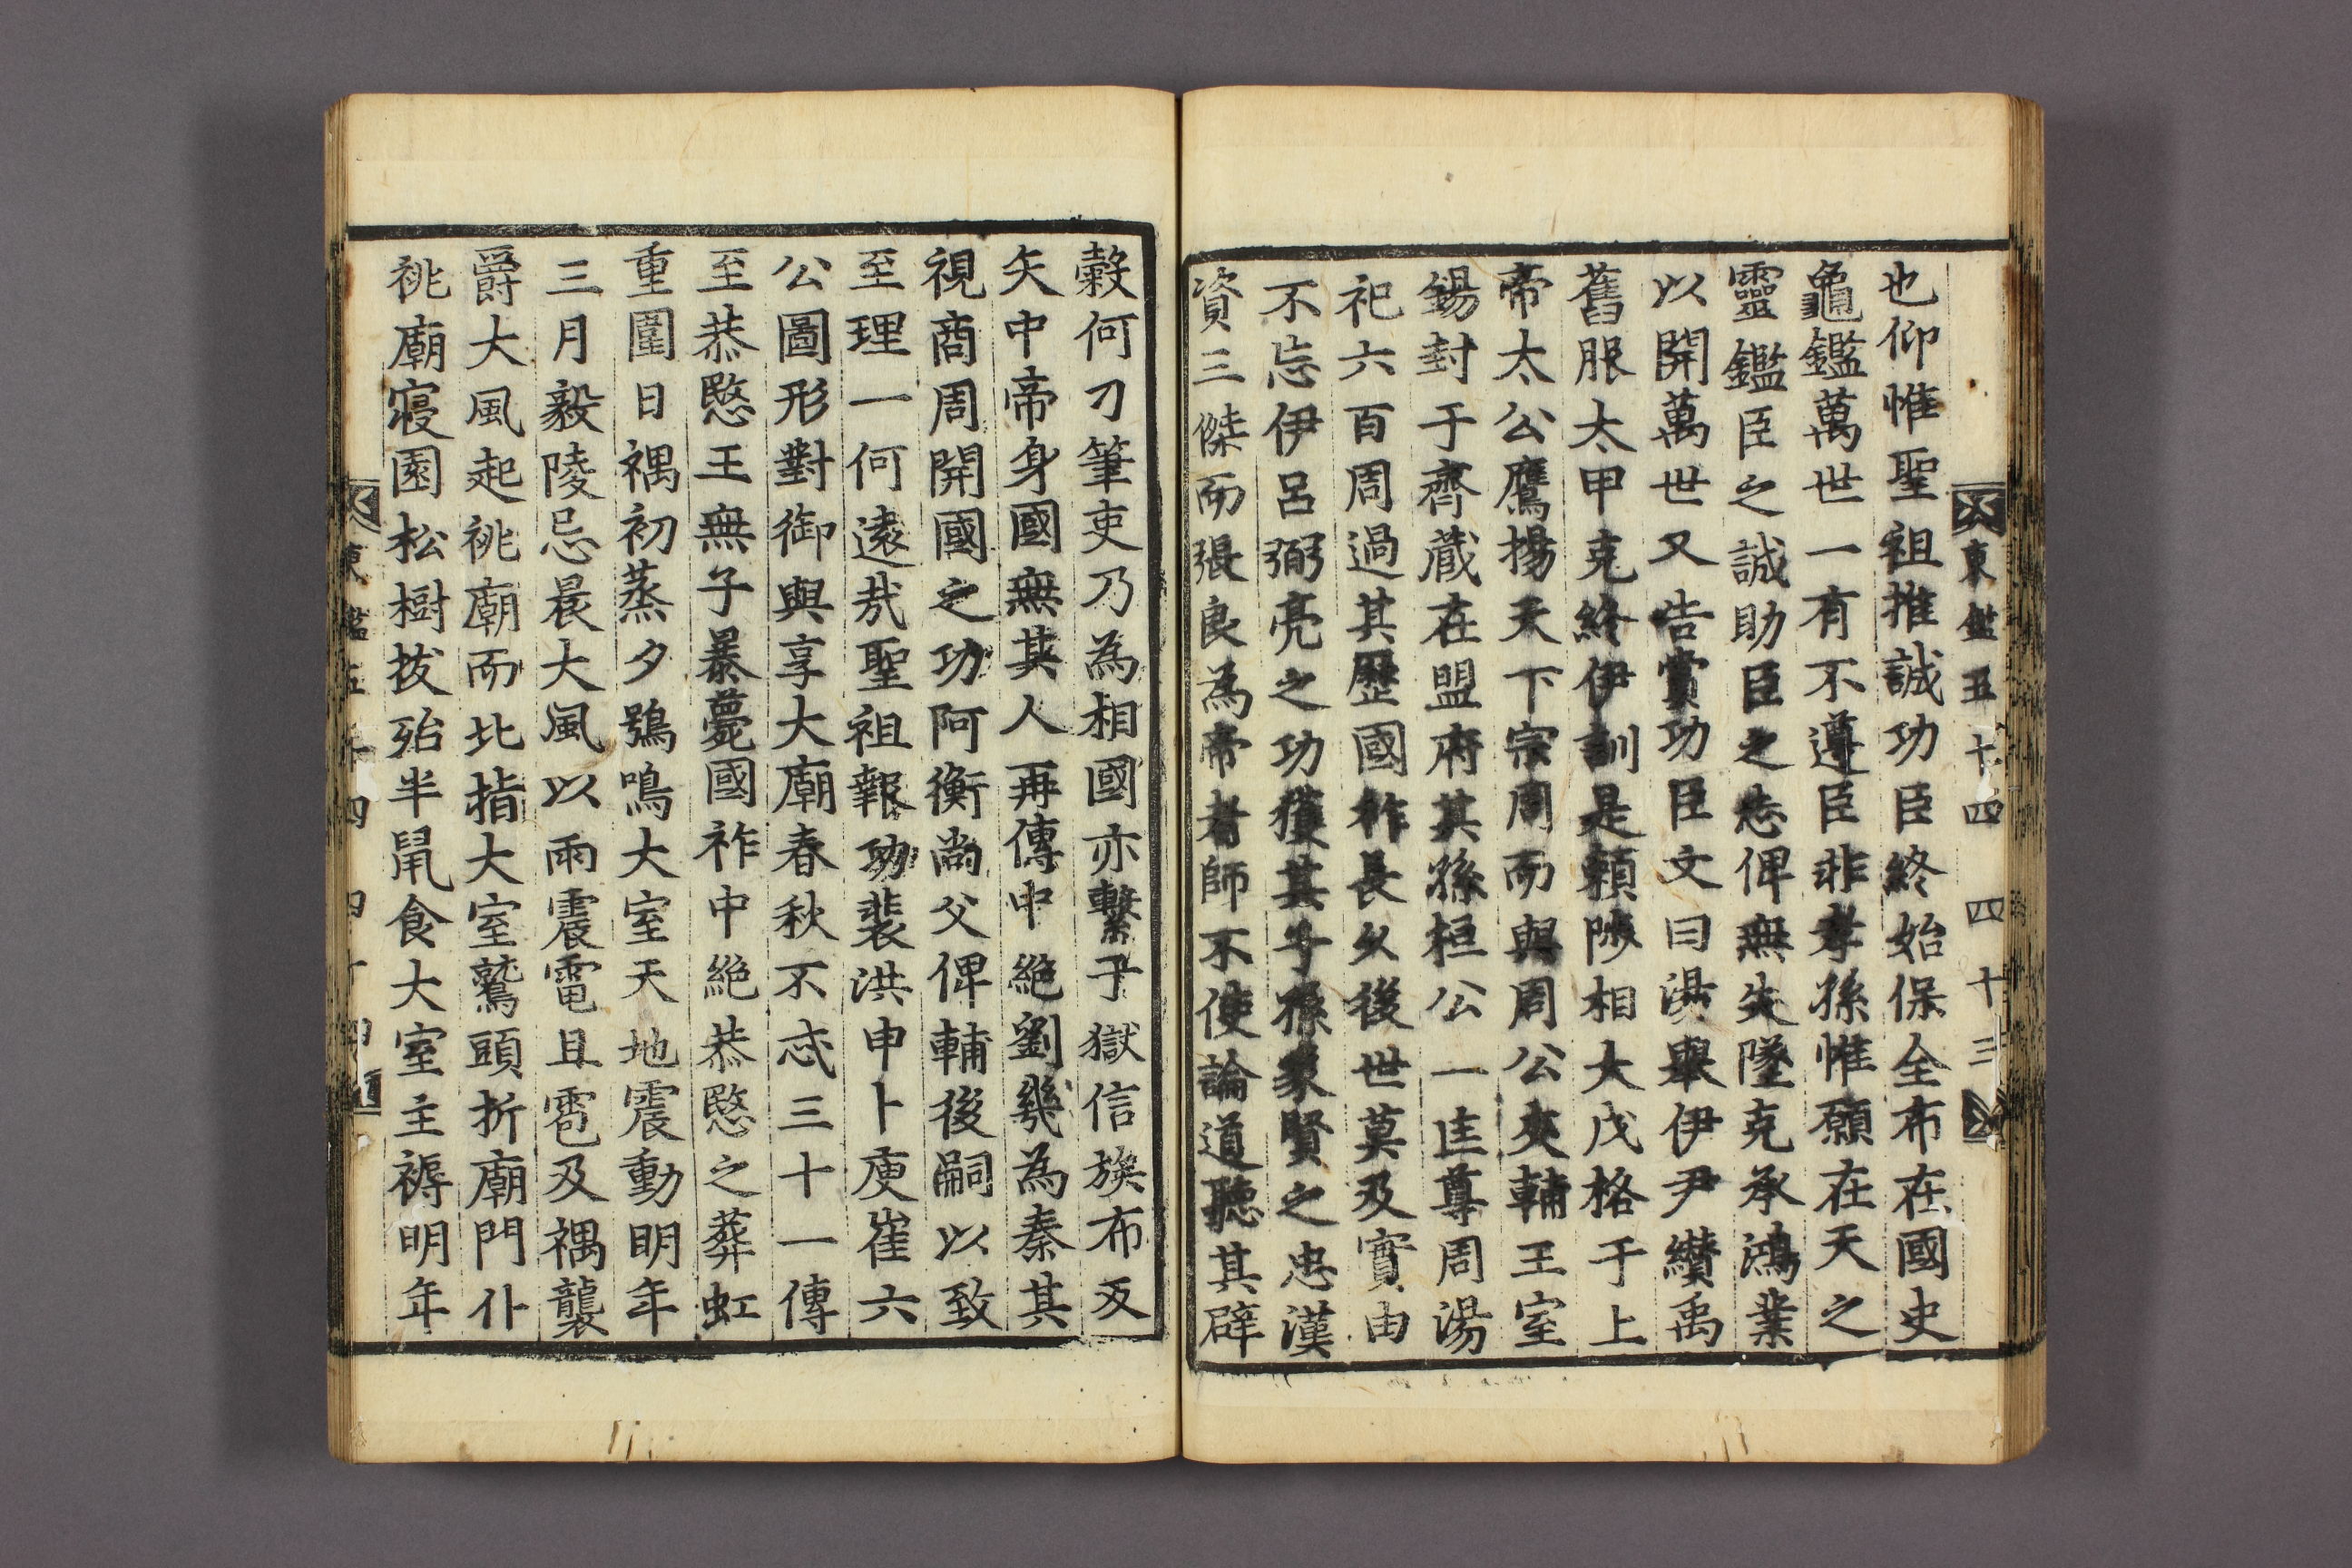 東鑑五十四 四十三
也仰惟聖祖推誠功臣終始保全布在國史
龜鑑萬世一有不遵臣非孝孫惟願在天之
靈鑑臣之誠助臣之志俾無失墜克承鴻業
以開萬世又告賞功臣文曰湯舉伊尹纉禹
舊服太甲克終伊訓是頼陟相大戊格于上
帝太公鷹揚天下宗周而與周公夾輔王室
錫封于齊藏在盟府其孫桓公一匡尊周湯
祀六百周過其歷國祚長久後世莫及實由
不忘伊呂弼亮之功獲其子孫象賢之忠漢
資三傑而張良為帝者師不使論道聽其辟
穀何刀筆吏乃為相國亦繫于獄信族布叐
矢中帝身國無其人再傳中絶劉幾為秦其
視商周開國之功阿衡尚父俾輔後嗣以致
至理一何遠㢤聖祖報功裴洪申卜庾崔六
公圖形對御與享大廟春秋不忒三十一傳
至恭愍王無子暴薨國祚中絶恭愍之葬虹
重圍日禑初蒸夕鵶鳴大室天地震動明年
三月毅陵忌晨大風以雨震電且雹及禑襲
爵大風起祧廟而北指大室鷲頭折廟門仆
祧廟寢園松樹拔殆半鼠食大室主褥明年